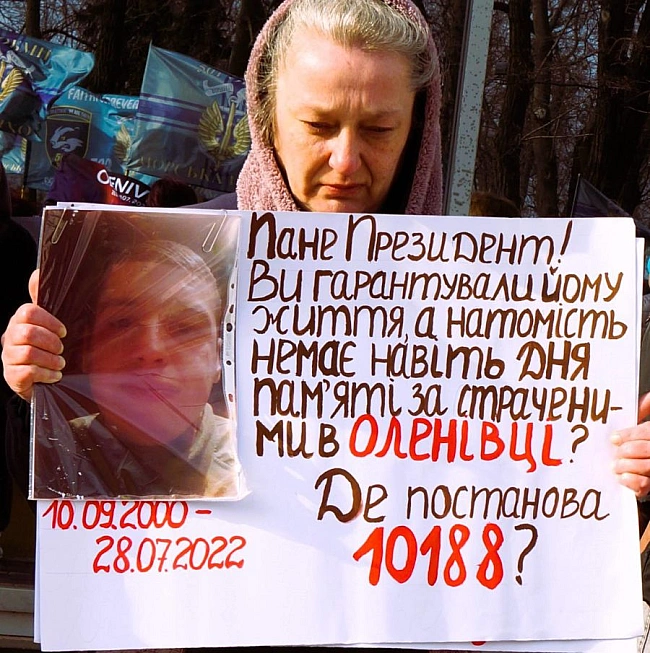 FAITH FOREVER
OLENIV
Пане Президент!
Ви гарантували йому
життя, а натомість
немає навіть ДНЯ
пам'яті за страчени-
ми в ОЛЕНІВЦІ?
Де постанова
10188?
10.09.2000 –
28.07.2022